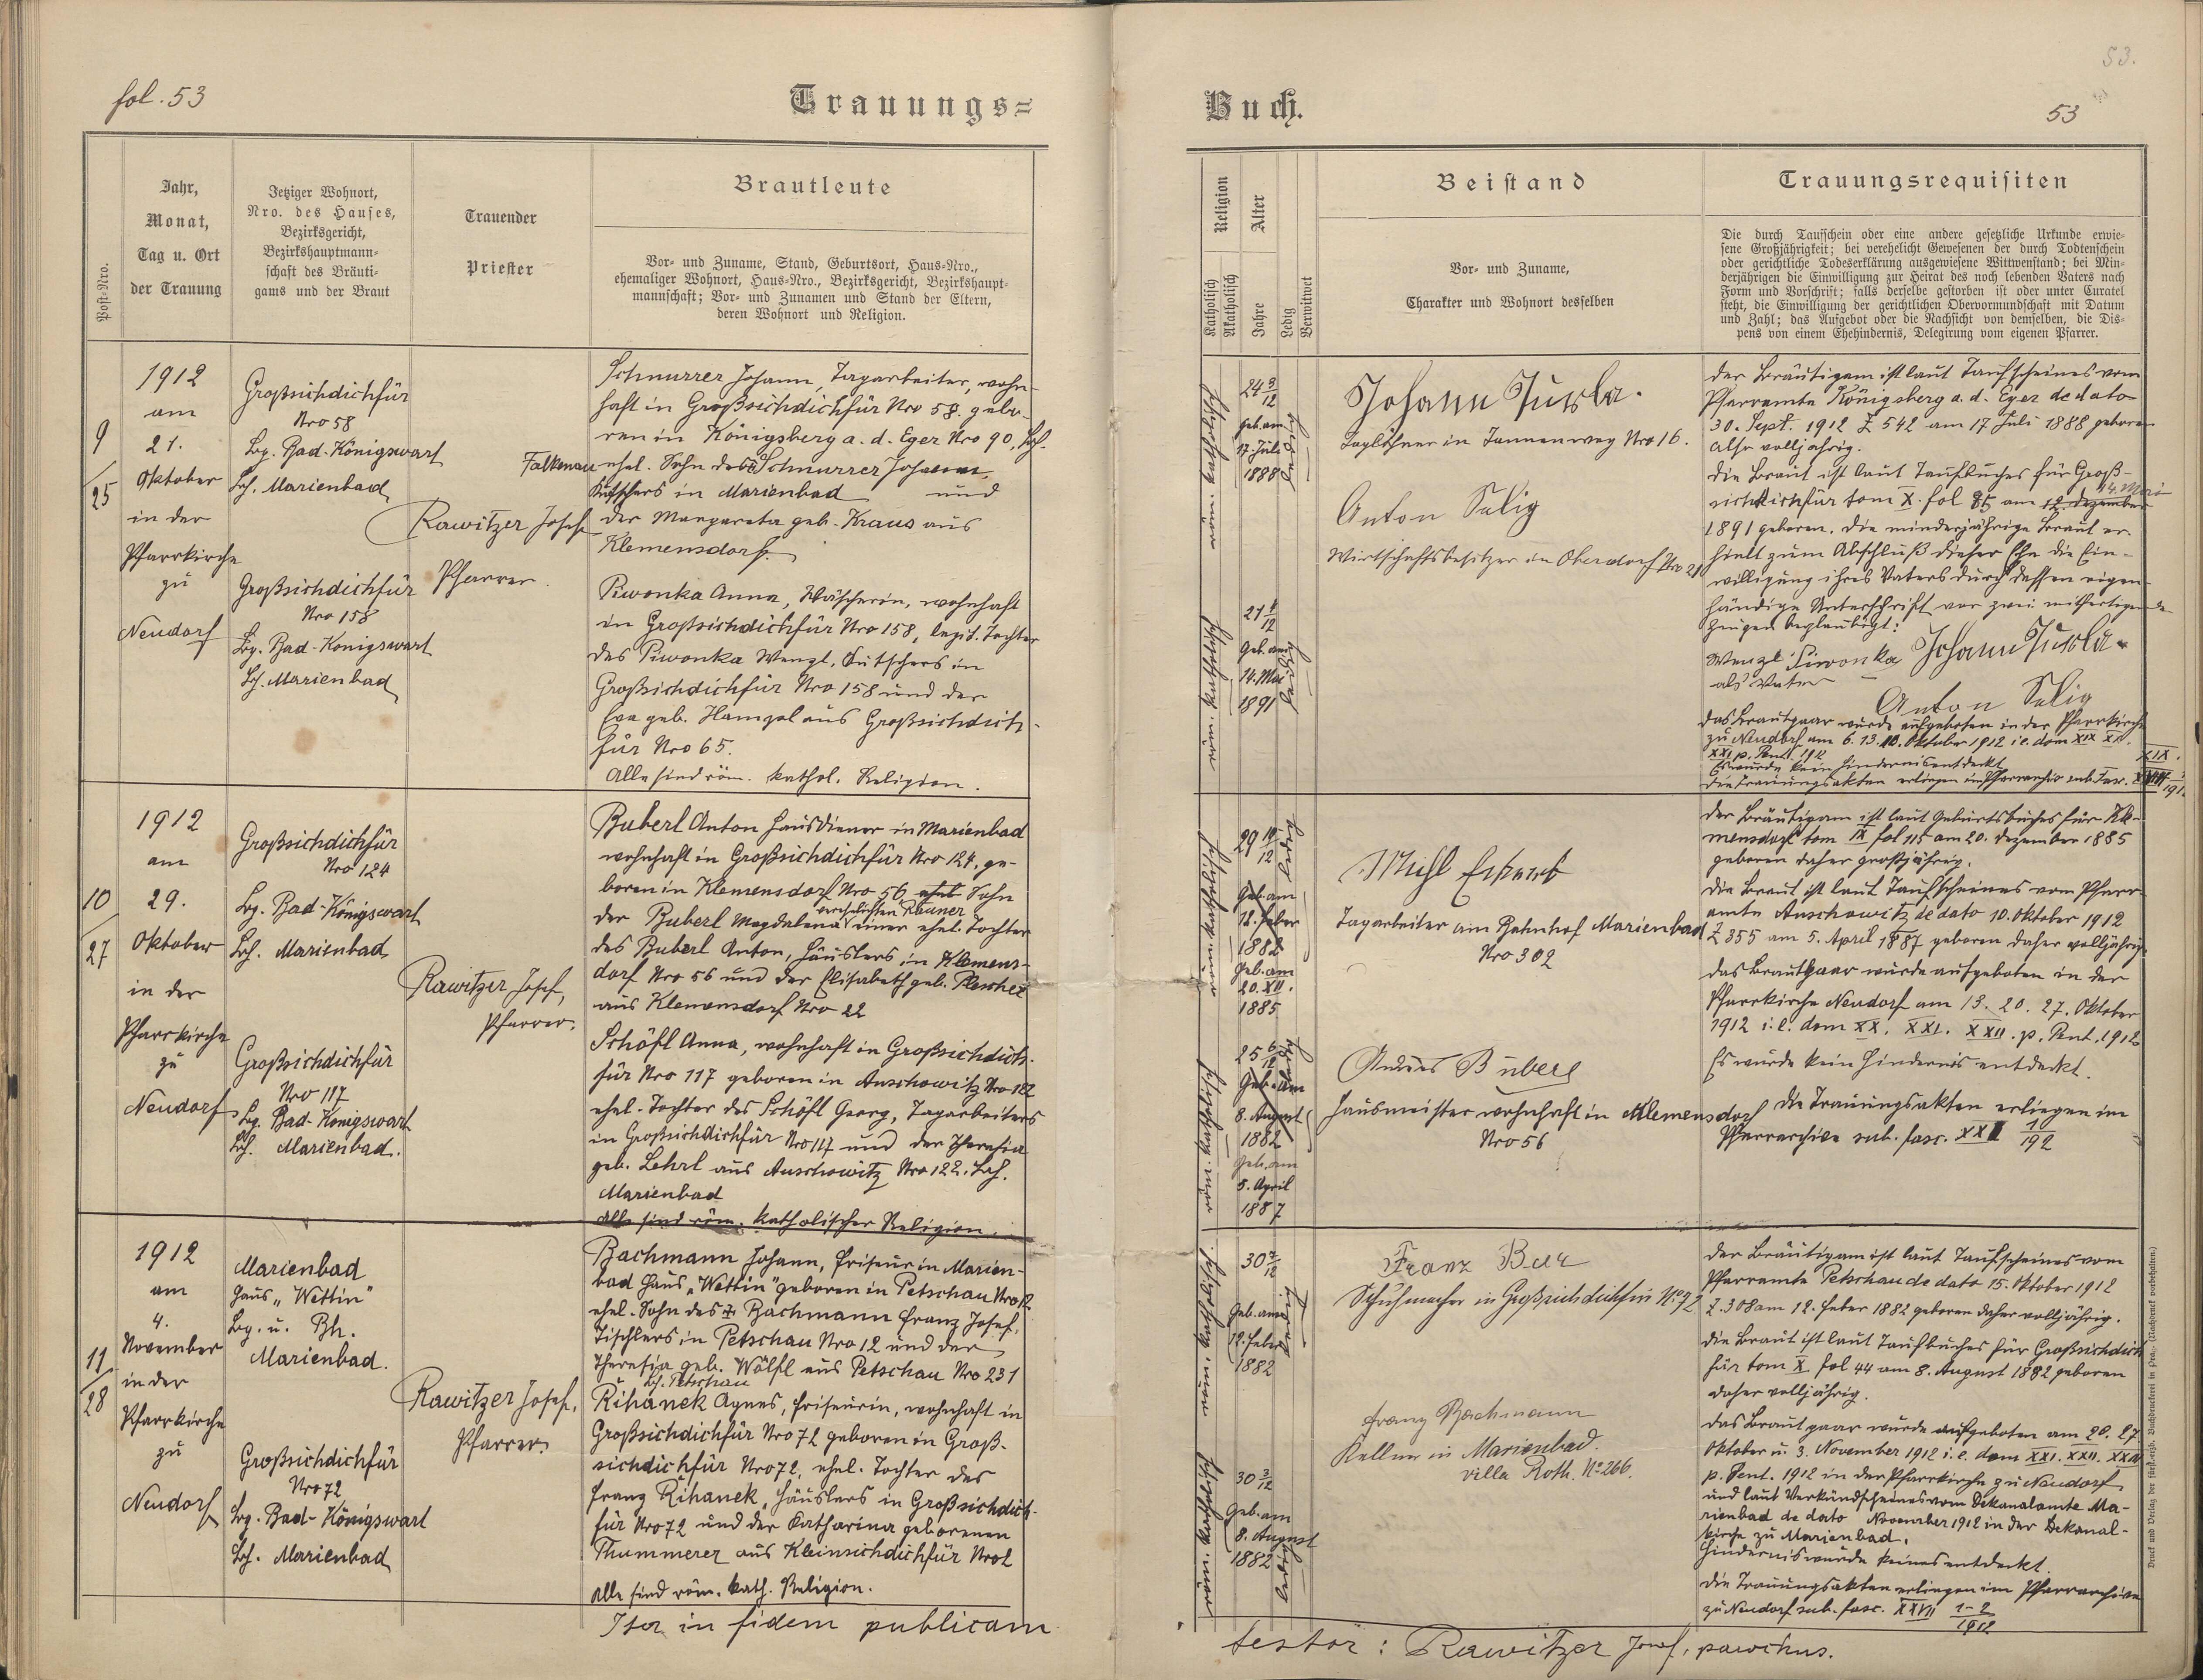 fol. 53
Trauungs=
Post-Nro.
Jahr,
Monat,
Tag u. Ort
der Trauung
Jetziger Wohnort,
Nro. des Hauses,
Bezirksgericht,
Bezirkshauptmann-
schaft des Bräuti-
gams und der Braut
Trauender
Priester
Brautleute
Vor- und Zuname, Stand, Geburtsort, Haus-Nro.,
ehemaliger Wohnort, Haus-Nro., Bezirksgericht, Bezirkshaupt-
mannschaft; Vor- und Zunamen und Stand der Eltern,
deren Wohnort und Religion.
9
25
1912
am
21.
Oktober
in der
Pfarrkirche
zu
Neudorf
Großsichdichfür
Nro 58
Bg. Bad-Königswart
Bh. Marienbad
Großsichdichfür
Nro 158
Bg. Bad-Königswart
Bh. Marienbad
Rawitzer Josef
Pfarrer.
Schnurrer Johann, Tagarbeiter, wohn-
haft in Großsichdichfür Nro 58. gebo-
ren in Königsberg a. d. Eger Nro 90, Bh.
Falkenau ehel. Sohn des Schnurrer Johann,
Kutschers in Marienbad und
der Margareta geb. Kraus aus
Klemensdorf.
Piwonka Anna, Wäscherin, wohnhaft
in Großsichdichfür Nro 158, legit. Tochter
des Piwonka Wenzl, Kutschers in
Großsichdichfür Nro 158 und der
Eva geb. Hamperl aus Großsichdich-
für Nro 65.
Alle sind röm. kathol. Religion.
10
27
1912
am
29.
Oktober
in der
Pfarrkirche
zu
Neudorf
Großsichdichfür
Nro 124
Bg. Bad-Königswart
Bh. Marienbad
Großsichdichfür
Nro 117
Bg. Bad-Königswart
Bh. Marienbad.
Rawitzer Josef,
Pfarrer.
Buberl Anton Hausdiener in Marienbad
wohnhaft in Großsichdichfür Nro 124, ge-
boren in Klemensdorf Nro 56 ehel. Sohn
verehelichten Rauner
der Buberl Magdalena einer ehel. Tochter
des Buberl Anton, Häuslers in Klemens-
dorf Nro 56 und der Elisabeth geb.
aus Klemensdorf Nro 22
Schöfl Anna, wohnhaft in Großsichdich-
für Nro 117 geboren in Auschowitz Nro 122
ehel. Tochter des Schöfl Georg, Tagarbeiters
in Großsichdichfür Nro 117 und der Theresia
geb. Lehrl aus Auschowitz Nro 122. Bh.
Marienbad
Alle sind röm. katholischer Religion.
11
28
1912
am
4.
November
in der
Pfarrkirche
zu
Neudorf
Marienbad
Haus „Wettin"
Bg. u. Bh.
Marienbad.
Großsichdichfür
Nro 72
Bg. Bad-Königswart
Bh. Marienbad
Rawitzer Josef,
Pfarrer.
Bachmann Johann, Friseur in Marien-
bad Haus „Wettin" geboren in Petschau Nro 12.
ehel. Sohn des Bachmann Franz Josef,
Tischlers in Petschau Nro 12 und der
Theresia geb. Wölfl aus Petschau Nro 231
Bh. Petschau
Řihanek Agnes, Friseurin, wohnhaft in
Großsichdichfür Nro 72 geboren in Groß-
sichdichfür Nro 72, ehel. Tochter des
Franz Řihanek, Häuslers in Großsichdich-
für Nro 72 und der Katharina geborenen
Thummerer aus Kleinsichdichfür Nro 2
Alle sind röm. kath. Religion.
Ita in fidem publicam
53.
Buch.
53
Religion
Katholisch
Akatholisch
Alter
Jahre
Ledig
Verwitwet
Beistand
Vor- und Zuname,
Charakter und Wohnort desselben
Trauungsrequisiten
Die durch Taufschein oder eine andere gesetzliche Urkunde erwie-
sene Großjährigkeit; bei verehelicht Gewesenen der durch Todtenschein
oder gerichtliche Todeserklärung ausgewiesene Wittwenstand; bei Min-
derjährigen die Einwilligung zur Heirat des noch lebenden Vaters nach
Form und Vorschrift; falls derselbe gestorben ist oder unter Curatel
steht, die Einwilligung der gerichtlichen Obervormundschaft mit Datum
und Zahl; das Aufgebot oder die Nachsicht von demselben, die Dis-
pens von einem Ehehindernis, Delegirung vom eigenen Pfarrer.
röm. katholisch
24 3/12
geb. am
17. Juli
1888
ledig
röm. katholisch
21
Geb. am
14. Mai
1891
ledig
Johann
Taglöhner in Tannenweg Nro 16.
Anton Selig
Wirtschaftsbesitzer in Oberdorf Nro 21
Der Bräutigam ist laut Taufscheines vom
Pfarramte Königsberg a. d. Eger de dato
30. Sept. 1912 Z 542 am 17 Juli 1888 geboren
also volljährig.
Die Braut ist laut Taufbuches für Groß-
14. Mai
sichdichfür tom X. fol 85 am 12. Dezember
1891 geboren. Die minderjährige Braut er-
hielt zum Abschluß dieser Ehe die Ein-
willigung ihres Vaters durch dessen eigen-
händige Unterschrift vor zwei mitfertigende
Zeugen beglaubigt:
Wenzl Piwonka Johann
als Vater
Anton Selig
Das Brautpaar wurde aufgeboten in der Pfarrkirche
zu Neudorf am 6. 13. 20. Oktober 1912 i.e. dom XIX XX.
XXI p. Pent. 1912
Es wurde kein Hindernis entdeckt
Die Trauungsakten erliegen im Pfarrarchiv sub. Fasc.
XIX.
röm. katholisch
29 10/12
Geb. am
12. Feber
1882
Geb. am
20. XII.
1885
ledig
röm. katholisch
25 6/12
Geb. am
8. August
1882
Geb. am
5. April
1887
Michl
Tagarbeiter am Bahnhof Marienbad
Nro 302
Buberl
Hausmeister wohnhaft in Klemensdorf
Nro 56
Der Bräutigam ist laut Geburtsbuches für Kle-
mensdorf tom IX fol 115 am 20. Dezember 1885
geboren daher großjährig.
Die Braut ist laut Taufscheines vom Pfarr-
amte Auschowitz de dato 10. Oktober 1912
Z 355 am 5. April 1887 geboren daher volljährig.
Das Brautpaar wurde aufgeboten in der
Pfarrkirche Neudorf am 13. 20. 27. Oktober
1912 i.e. dom XX. XXI. XXII. p. Pent. 1912
Es wurde kein Hindernis entdeckt.
Die Trauungsakten erliegen im
Pfarrarchive sub. fasc.
röm. katholisch
30 7/12
Geb. am
12. Feber
1882
ledig
röm. katholisch
30 3/12
Geb. am
8. August
1882
ledig
Franz
Schuhmacher in Großsichdichfür No 72
Franz Bachmann
Kellner in Marienbad.
villa Roth. No 266.
Der Bräutigam ist laut Taufscheines vom
Pfarramte Petschau de dato 15. Oktober 1912
Z. 308 am 12. Feber 1882 geboren daher volljährig.
Die Braut ist laut Taufbuches für Großsichdich
für tom X fol 44 am 8. August 1882 geboren
daher volljährig.
Das Brautpaar wurde aufgeboten am 20. 27
Oktober u. 3. November 1912 i.e. dom XXI. XXII. XXIII
p. Pent. 1912 in der Pfarrkirche zu Neudorf
und laut Verkündscheines vom Dekanalamte Ma-
rienbad de dato November 1912 in der Dekanal-
kirche zu Marienbad.
Hindernis wurde keines entdeckt.
Die Trauungsakten erliegen im Pfarrarchive
zu Neudorf sub. fasc. XXVII 1-2/1912
testor: Rawitzer Josef, parochus.
Druck und Verlag der fürst-erzb. Buchdruckerei in Prag. (Nachdruck vorbehalten.)